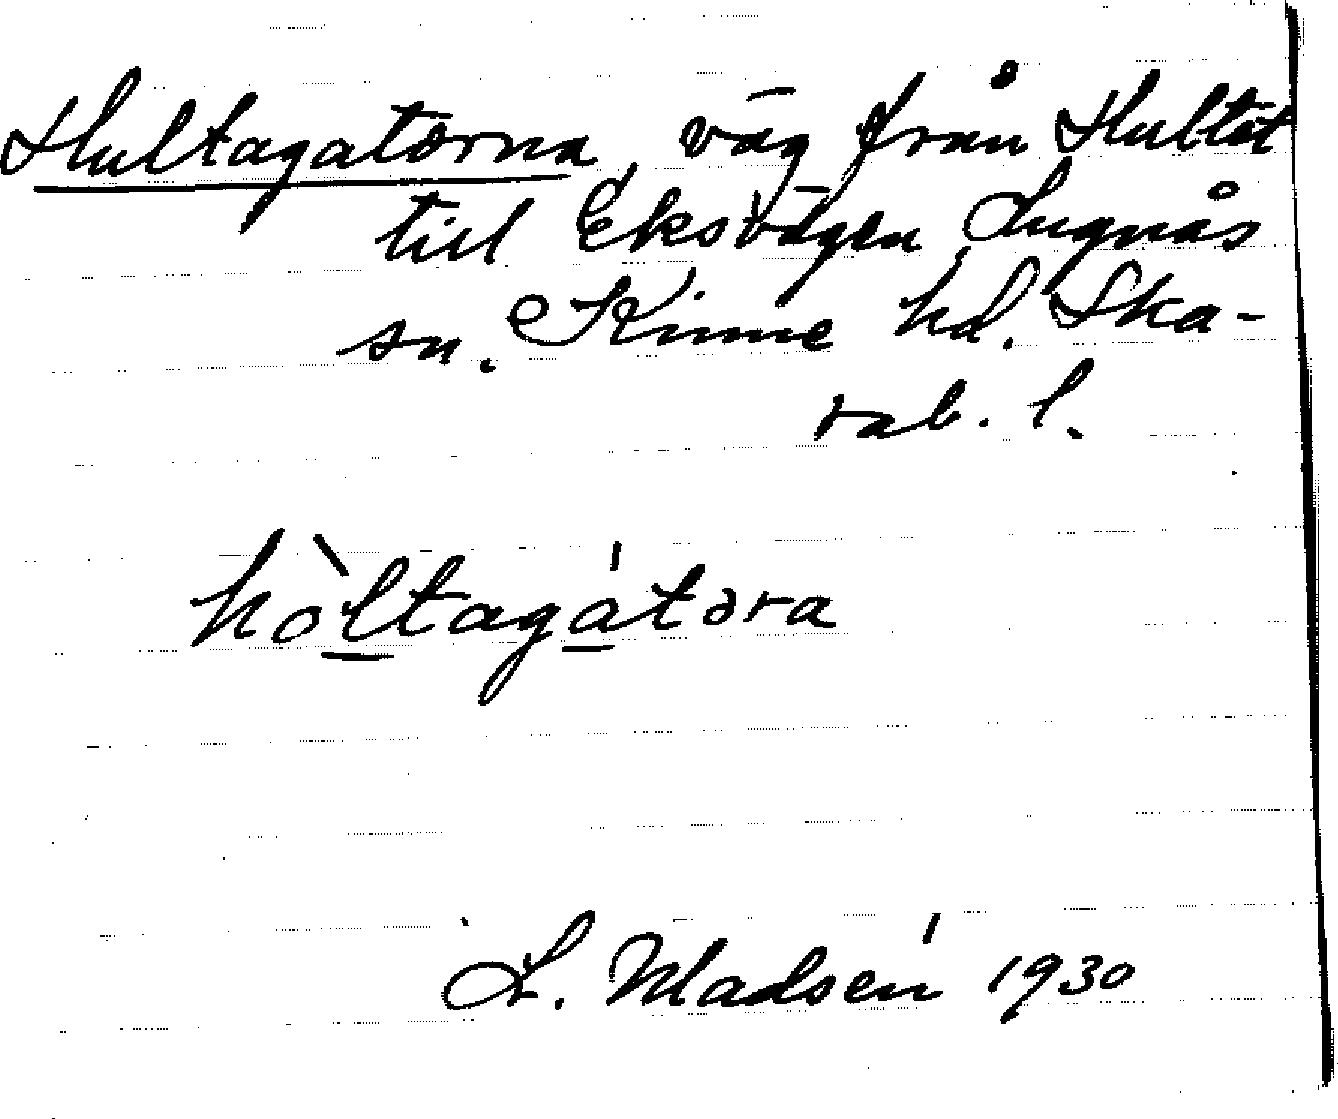 Hultagatorna, väg från Hultet
till Eksvägen Lugnås
sn. Kinne hd. Ska-
rab. l.
hòltagátəra
L. Madsén 1930